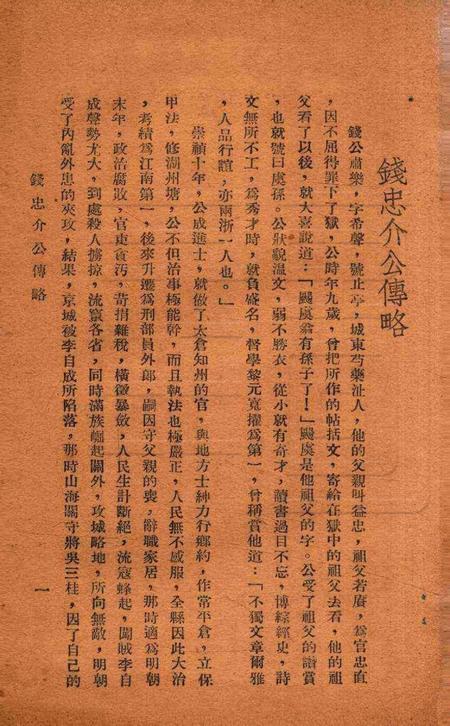 錢忠介公傳略
錢公肅樂,字希聲,號止亭,城東芍藥沚人,他的父親叫益忠,祖父若賡,爲官忠直
,因不屈得罪下了獄,公時年九歲,曾把所作的帖括文,寄給在獄中的祖父去看,他的祖
父看了以後,就大喜說道:「颺虞翁有孫子了!」颺虞是他祖父的字。公受了祖父的讚賞
,也就號曰虞孫。公狀貌温文,弱不勝衣,從小就有奇才,讀書過目不忘,博綜經史,詩
文無所不工,爲秀才時,就負盛名,督學黎元寬擢爲第一,曾稱賞他道:「不獨文章爾雅
,人品行誼,亦兩浙一人也。」
崇禎十年,公成進士,就做了太倉知州的官,與地方士紳力行鄉約,作常平倉,立保
甲法,修湖州塘,公不但治事極能幹,而且執法也極嚴正,人民無不感服,全縣因此大治
,考績爲江南第一,後來升遷爲刑部員外郎,嗣因守父親的喪,辭職家居,那時適爲明朝
末年,政治腐敗,官吏貪汚,苛捐雜稅,橫徵暴斂,人民生計斷絕,流寇蜂起,闖賊李自
成聲勢尤大,到處殺人擄掠,流竄各省,同時滿族崛起關外,攻城略地,所向無敵,明朝
受了內亂外患的夾攻,結果,京城被李自成所陷落,那時山海關守將吳三桂,因了自己的
錢忠介公傳略
一